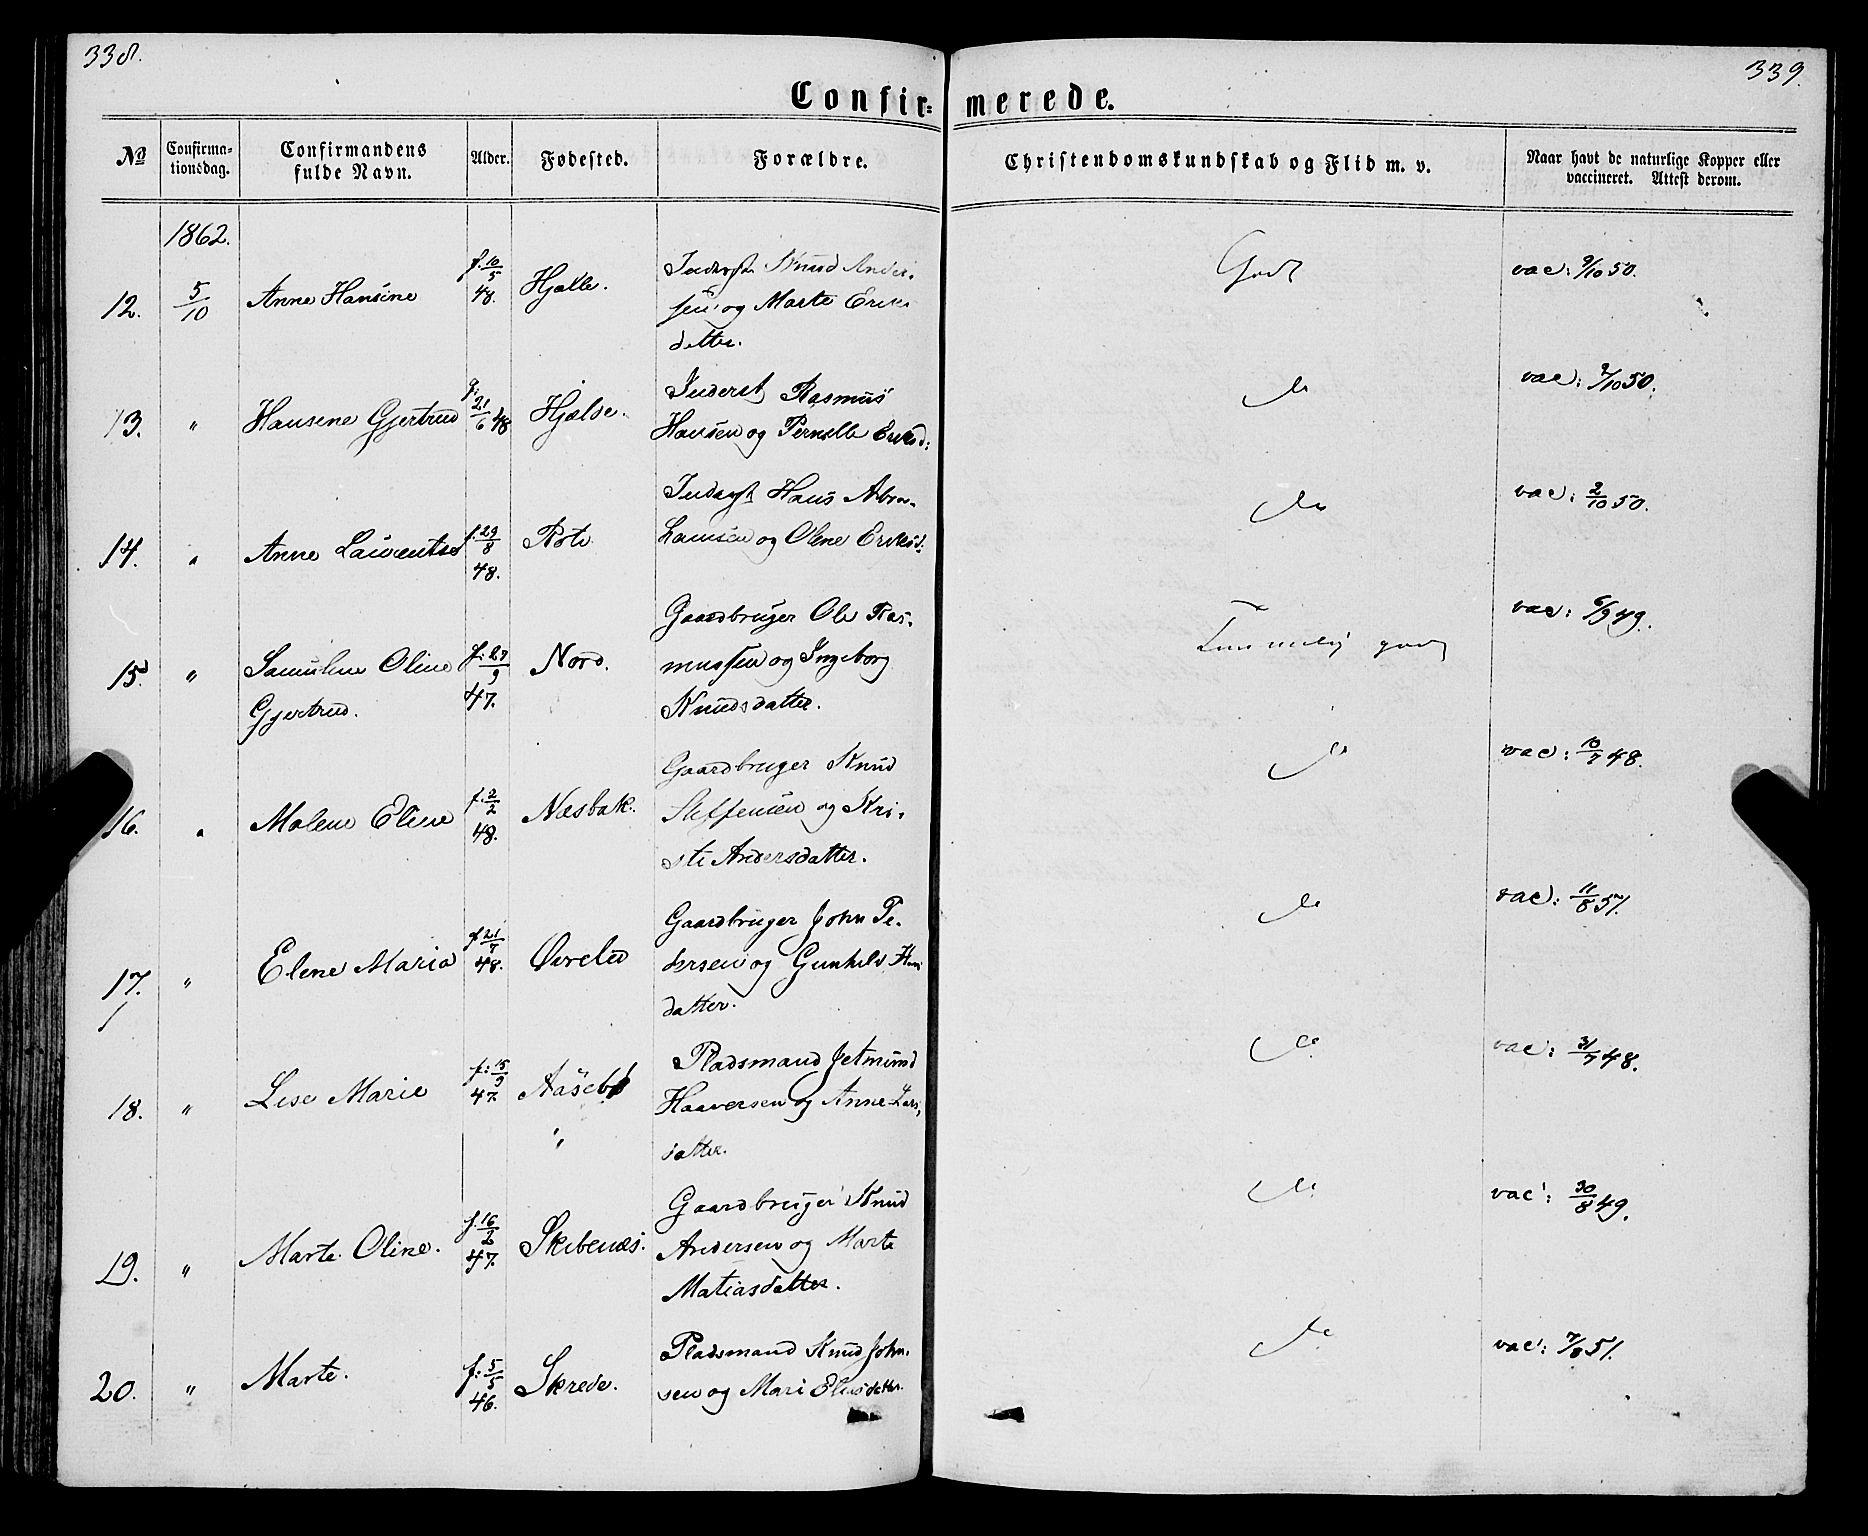 338.
339.
Confir= merede.
No
Confirma-
tionsdag.
Confirmandens
fulde Navn.
Alder.
Fødested.
Forældre.
Christendomskundskab og Flid m. v.
Naar havt de naturlige Kopper eller
vaccineret. Attest derom.
1862.
12. 5/10 Anne Hansine f. 10/5 48. Hjelle. Inderst Knud Ander-
sen og Marte Eriks
datter.
Godt vac: 9/10 50.
13. " Hansene Gjertrud 21/6 48 Hjelde. Inderst Rasmus
Hansen og Pernelle Eriksd:
do vac: 2/10 50.
14. " Anne Laurentse f. 29/8 48. Inderst Hans Abra-
hamsen og Olene Eriksd.
do vac: 2/10 50.
15. " Samuline Oline
Gjertrud. f. 29/9 47. Nord. Gaardbruger Ole Ras-
mussen og Ingeborg
Knudsdatter.
Temmelig godt vac: 6/9 49.
16. " Malene Eline f. 2/2 48. Næsbak. Gaardbruger Knud
Steffensen og Kri-
sti Andersdatter.
do vac: 10/7 48.
17. " Elene Maria f. 21/7 48. Øvrelid Gaardbruger John Pe-
dersen og Gunhild
datter.
do vac: 11/8 51.
18. " Lise Marie f: 15/9 47. Aasebø Pladsmand Jetmund
Haaversen og Anne Lars
datter.
"
do vac: 31/7 48.
19. " Marte Oline. f. 16/2 47. Skibenæs. Gaardbruger Knud
Andersen og Marte
Matiasdatter.
do vac: 30/8 49.
20. " Marte. f: 5/5 46. Skrede. Pladsmand Knud John-
sen og Mari Eliasdatter.
do vac: 7/8 51.